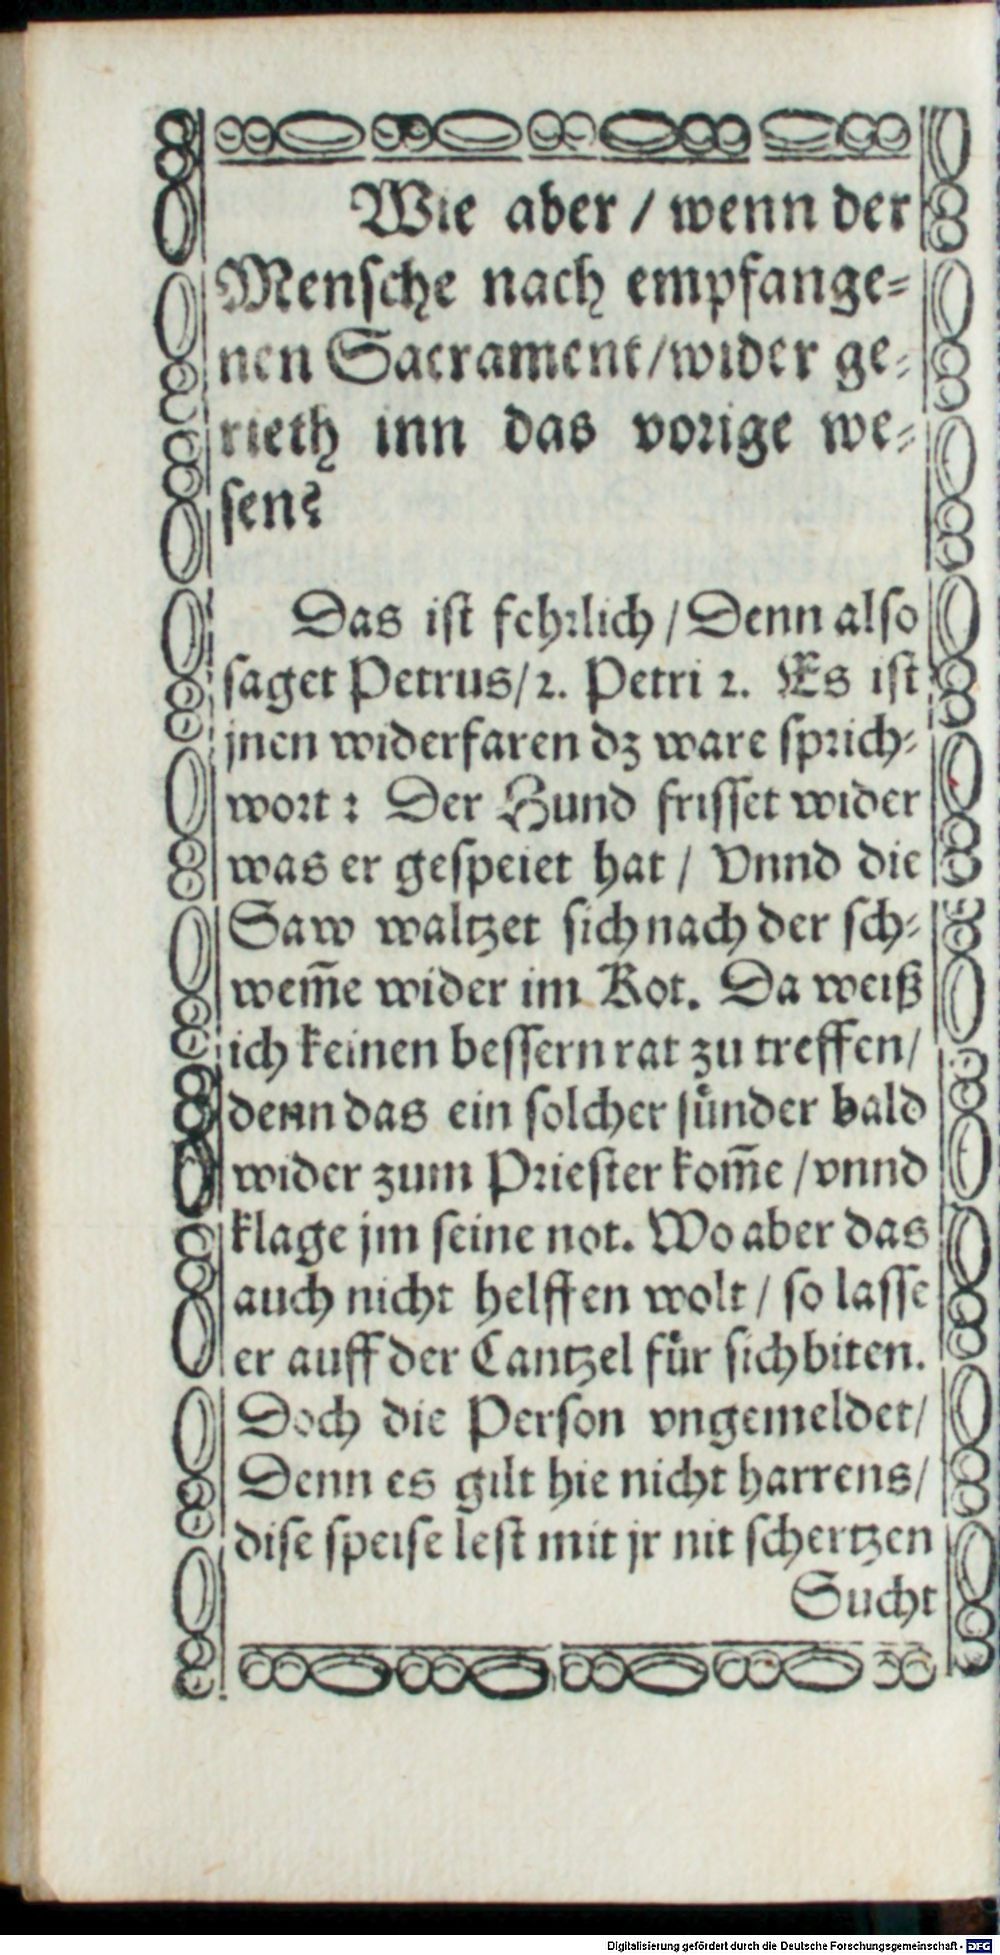 Wie aber / wenn der
Menſche nach empfange⸗
nen Sacrament/wider ge⸗
rieth inn das voꝛige we⸗
ſen?
Das iſt fehꝛlich / Denn alſo
ſaget Petrus/2. Petri 2. Es iſt
jnen widerfaren dz ware ſpꝛich⸗
woꝛt: Der Hund friſſet wider
was er geſpeiet hat / Vnnd die
Saw waltzet ſich nach der ſch⸗
wem̃e wider im Kot. Da weiß
ich keinen beſſern rat zu treffen/
denn das ein ſolcher ſuͤnder bald
wider zum Pꝛieſter kom̃e / vnnd
klage jm ſeine not. Wo aber das
auch nicht helffen wolt / ſo laſſe
er auff der Cantzel fuͤr ſich biten.
Doch die Perſon vngemeldet/
Denn es gilt hie nicht harrens/
diſe ſpeiſe leſt mit jr nit ſchertzen
Sucht
Digitalisierung gefördert durch die Deutsche Forschungsgemeinschaft - DFG